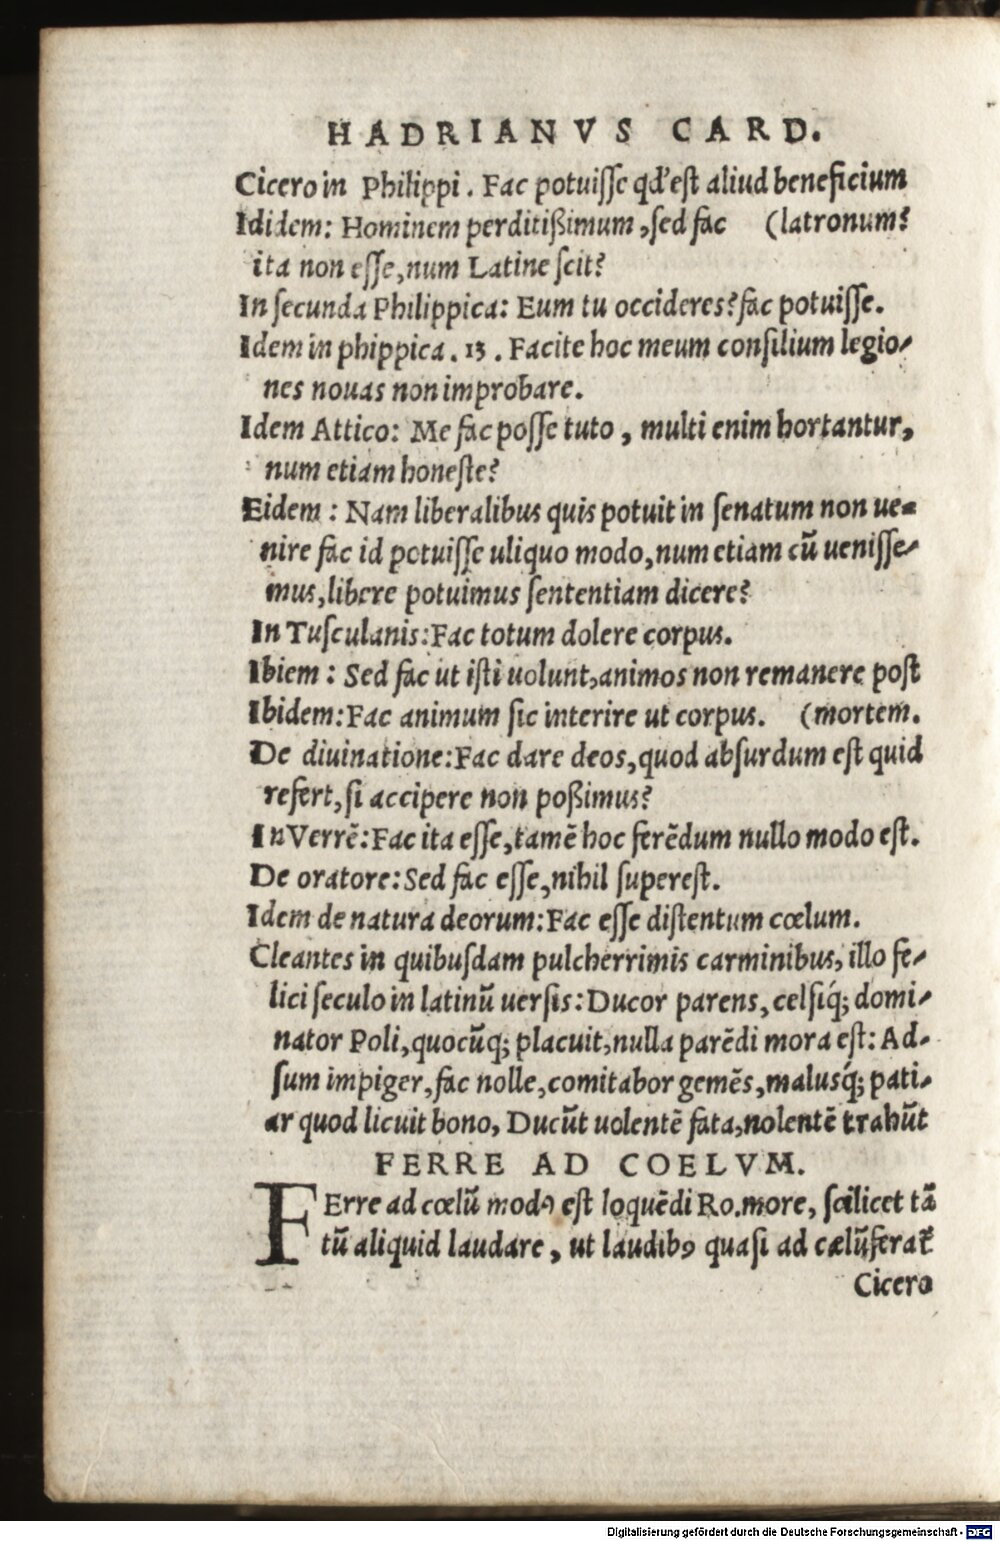 HADRIANVS CARD.
Cicero in Philippi. Fac potuiſſe qd' eſt aliud beneficium
Ididem: Hominem perditißimum, ſed fac (latronum?
ita non eſſe, num Latine ſcit?
In ſecunda Philippica: Eum tu occideres? fac potuiſſe.
Idem in phippica. 13. Facite hoc meum conſilium legio-
nes nouas non improbare.
Idem Attico: Me fac poſſe tuto, multi enim hortantur,
num etiam honeſte?
Eidem: Nam liberalibus quis potuit in ſenatum non ue-
nire fac id potuiſſe uliquo modo, num etiam cū ueniſſe-
mus, libere potuimus ſententiam dicere?
In Tuſculanis: Fac totum dolere corpus.
Ibiem: Sed fac ut iſti uolunt, animos non remanere poſt
Ibidem: Fac animum ſic interire ut corpus. (mortem.
De diuinatione: Fac dare deos, quod abſurdum eſt quid
refert, ſi accipere non poßimus?
In Verrē: Fac ita eſſe, tamē hoc ferēdum nullo modo eſt.
De oratore: Sed fac eſſe, nihil ſupereſt.
Idem de natura deorum: Fac eſſe diſtentum cœlum.
Cleantes in quibuſdam pulcherrimis carminibus, illo fe-
lici ſeculo in latinū uerſis: Ducor parens, celſiq́; domi-
nator Poli, quocūq; placuit, nulla parēdi mora eſt: Ad-
ſum impiger, fac nolle, comitabor gemēs, malusq́; pati-
ar quod licuit bono, Ducūt uolentē fata, nolentē trahūt
FERRE AD COELVM.
FErre ad cœlū modꝰ eſt loquēdi Ro. more, ſcilicet tā
tū aliquid laudare, ut laudibꝰ quaſi ad cœlū ferat̃
Cicero
Digitalisierung gefördert durch die Deutsche Forschungsgemeinschaft - DFG